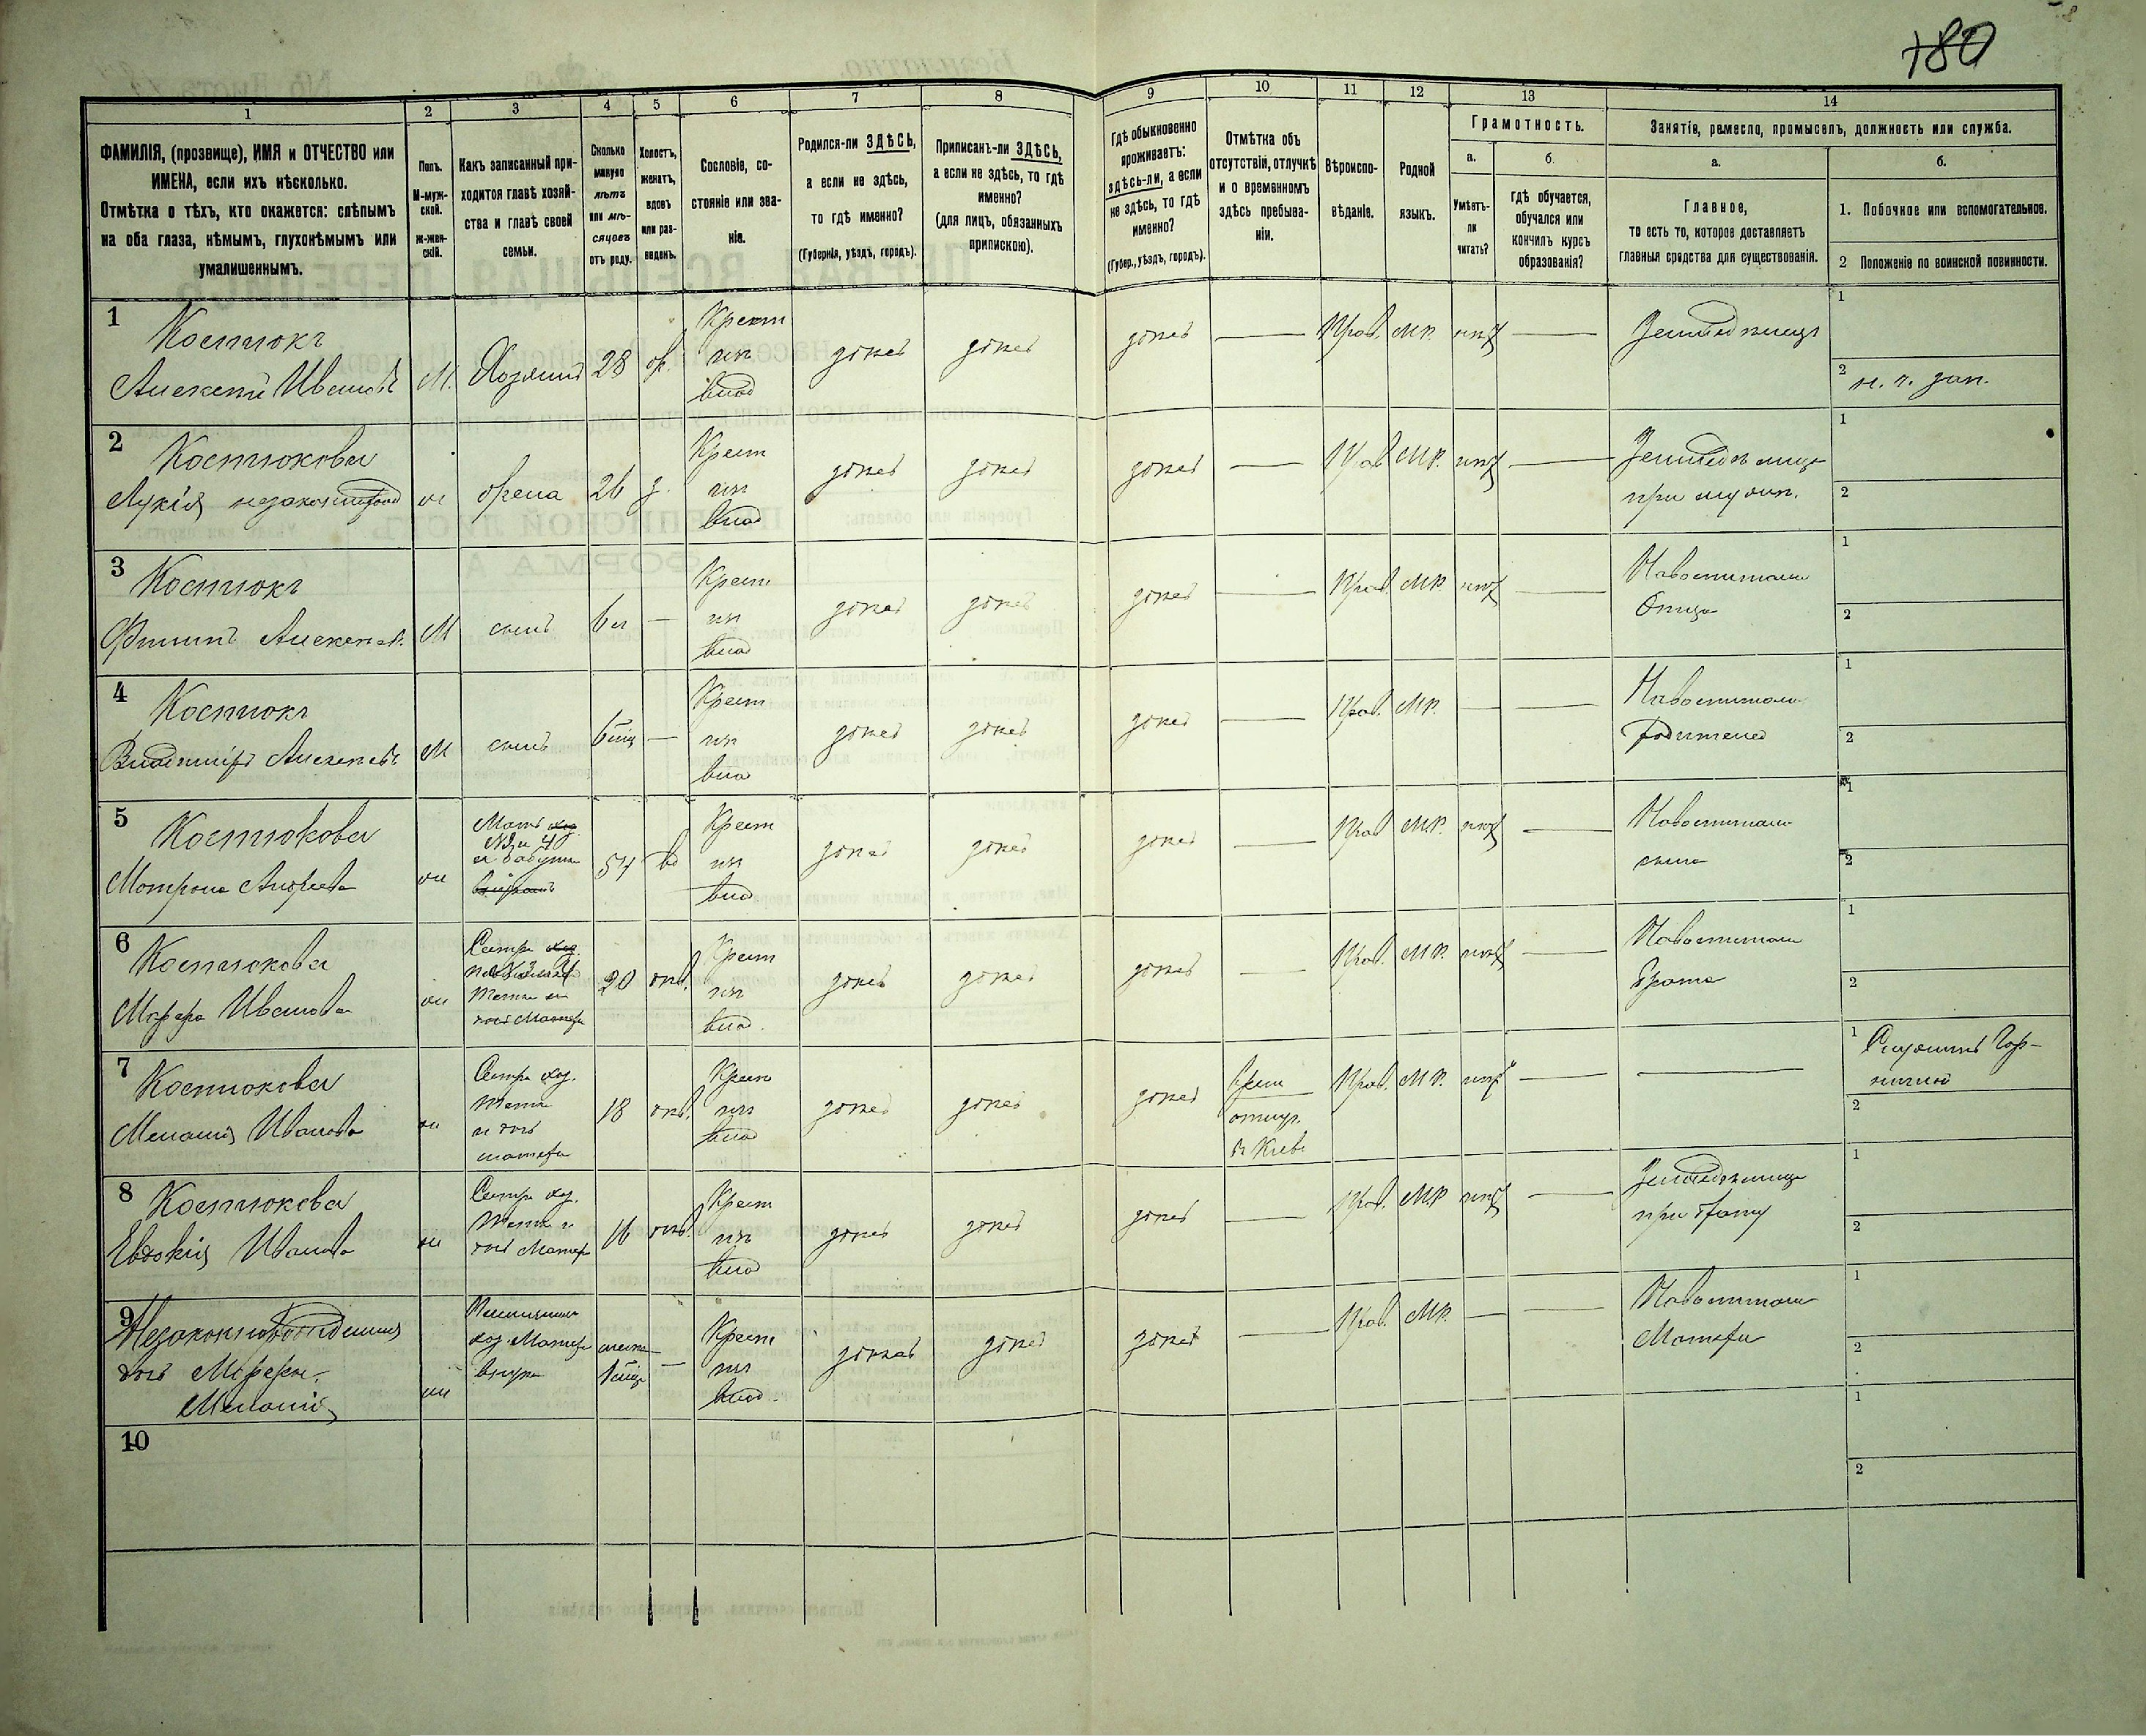 180
1 2 3 4 5 6 7 8 9 10 11 12 13 14
ФАМИЛІЯ, (прозвище), ИМЯ и ОТЧЕСТВО или
ИМЕНА, если ихъ нѣсколько.
Отмѣтка о тѣхъ, кто окажется: слѣпымъ
на оба глаза, нѣмымъ, глухонѣмымъ или
умалишеннымъ.
Полъ.
М-муж-
ской.
ж-жен-
скій.
Какъ записанный при-
ходится главѣ хозяй-
ства и главѣ своей
семьи.
Сколько
минуло
лѣтъ
или мѣ-
сяцевъ
отъ роду.
Холостъ,
женатъ,
вдовъ
или раз-
веденъ.
Сословіе, со-
стояніе или зва-
ніе.
Родился-ли ЗДѢСЬ,
а если не здѣсь,
то гдѣ именно?
(Губернія, уѣздъ, городъ).
Приписанъ-ли ЗДѢСЬ,
а если не здѣсь, то гдѣ
именно?
(для лицъ, обязанныхъ
припискою).
Гдѣ обыкновенно
проживаетъ:
здѣсь-ли, а если
не здѣсь, то гдѣ
именно?
(Губер., уѣздъ, городъ).
Отмѣтка объ
отсутствіи, отлучкѣ
и о временномъ
здѣсь пребыва-
ніи.
Вѣроиспо-
вѣданіе.
Родной
языкъ.
Грамотность.
а.
Умѣетъ-
ли
читать?
б.
Гдѣ обучается,
обучался или
кончилъ курсъ
образованія?
Занятіе, ремесло, промыселъ, должность или служба.
а.
Главное,
то есть то, которое доставляетъ
главныя средства для существованія.
б.
1. Побочное или вспомогательное.
2 Положеніе по воинской повинности.
1
Костюкъ
Алексѣй Ивановъ
М. Хозяинъ 28 ж.
Крест
изъ
влад
здѣсь здѣсь здѣсь — Прав. МР. нѣтъ —
Земледѣлецъ
1
2 н. ч. зап.
2
Костюкова
Лукія незаконнорожд
ж жена 26 з.
Крест
изъ
влад
здѣсь здѣсь здѣсь — Прав МР. нѣтъ —
Земледѣлица
при мужѣ.
1
2
3
Костюкъ
Филипъ Алексѣев.
М сынъ 6 л —
Крест
изъ
влад
здѣсь здѣсь здѣсь — Прав МР нѣтъ —
На воспитани
Отца
1
2
4
Костюкъ
Владиміръ Алексѣевъ
М сынъ 6 мц —
Крест
изъ
влад
здѣсь здѣсь здѣсь — Прав. МР. — —
На воспитани
Родителей
1
2
5
Костюкова
Матрона Андреева
ж
Мать хоз.
№3 и 4й
и бабушка
54 вд
Крест
изъ
влад
здѣсь здѣсь здѣсь — Прав МР. нѣтъ —
На воспитани
сына
1
2
6
Костюкова
Марфа Иванова
ж
Сестра хоз.
Тетка и
дочь Матери
20 дѣв.
Крест
изъ
влад.
здѣсь здѣсь здѣсь — Прав. МР. нѣтъ —
На воспитани
Брата
1
2
7
Костюкова
Меланія Иванова
ж
Сестра хоз.
Тетка
и дочь
матери
18 дѣв.
Крест
изъ
влад
здѣсь здѣсь здѣсь
врем
отлуч.
въ Кіевѣ
Прав. МР. нѣтъ — —
1 Служитъ Гор-
ничной
2
8
Костюкова
Евдокія Иванова
ж
Сестра хоз.
Тетка и
дочь Матер
16 дѣв.
Крест
изъ
влад
здѣсь здѣсь здѣсь — Прав. МР нѣтъ —
Земледѣлица
при Брату
1
2
9
Незаконнорожденная
дочь Марфы
Меланія
ж
Племянница
хоз. Матери
внука
менѣе
1 мца —
Крест
изъ
влад.
здѣсь здѣсь здѣсь — Прав. МР. — —
На воспитани
Матери
1
2
10
1
2